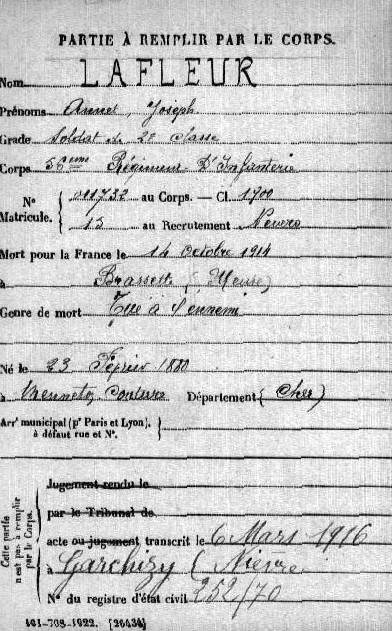 PARTIE À REMPLIR PAR LE CORPS.
Nom LAFLEUR
Prénoms Annet, Joseph
Grade Soldat de 2e classe
Corps 56ème Régiment D'Infanterie
N° Matricule. { 011732 au Corps. — Cl. 1900
15 au Recrutement Nevers
Mort pour la France le 14 octobre 1914
à (Meuse)
Genre de mort Tué à l'ennemi
Né le 23 Février 1880
à Menetou Couture Département (Cher)
Arrt municipal (pr Paris et Lyon),
à défaut rue et N°.
Cette partie n'est pas à remplir par le Corps.
Jugement rendu le
par le Tribunal de
acte ou jugement transcrit le 6 Mars 1916
à Garchizy (Nièvre)
N° du registre d'état civil 252/70
101-708-1922. [26434]